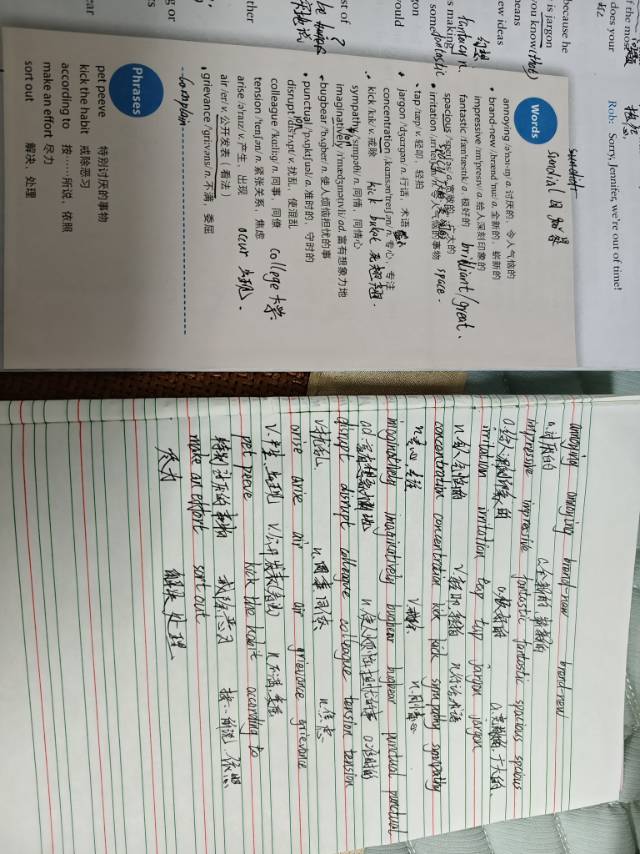 because he
is jargon
you know(that)
means
new ideas
is making
some
jargon
would
if the most
does your
Rob: Sorry, Jennifer, we're out of time!
Words
sundial 日晷
annoying /əˈnɔɪ-ɪŋ/ a. 讨厌的, 令人气恼的
• brand-new /ˌbrændˈnuː/ a. 全新的, 崭新的
impressive /ɪmˈpresɪv/ a. 给人深刻印象的
fantastic /fænˈtæstɪk/ a. 极好的 brilliant/great.
spacious /ˈspeɪʃəs/ a. 宽敞的, 广大的 space.
• irritation /ˌɪrɪˈteɪʃn/ n. 令人气恼的事物
• tap /tæp/ v. 轻叩, 轻拍
• jargon /ˈdʒɑrɡən/ n. 行话, 术语
concentration /ˌkɑnsənˈtreɪʃən/ n. 专心, 专注
• kick /kɪk/ v. 戒除
sympathy /ˈsɪmpəθi/ n. 同情, 同情心
imaginatively /ɪˈmædʒɪnətɪvli/ ad. 富有想象力地
• bugbear /ˈbʌɡber/ n. 使人烦恼担忧的事
• punctual /ˈpʌŋktʃuəl/ a. 准时的, 守时的
disrupt /dɪsˈrʌpt/ v. 扰乱, 使混乱
colleague /ˈkɑliɡ/ n. 同事, 同僚 college 大学
tension /ˈtenʃən/ n. 紧张关系, 焦虑
arise /əˈraɪz/ v. 产生, 出现 occur 出现.
air /er/ v. 公开发表（看法）
• grievance /ˈɡrivəns/ n. 不满, 委屈
Phrases
pet peeve 特别讨厌的事物
kick the habit 戒除恶习
according to 按……所说, 依照
make an effort 尽力
sort out 解决, 处理
annoying annoying brand-new brand-new
a.讨厌的 a.全新的 崭新的
impressive impressive fantastic fantastic spacious spacious
a.给人深刻印象的 a.极好的 a.宽敞的 广大的.
irritation irritation tap tap jargon jargon
n.令人气恼的 v.轻叩 轻拍 n.行话 术语
concentration concentration kick kick sympathy sympathy
n.专心 专注 v.戒除 n.同情心
imaginatively imaginatively bugbear bugbear punctual punctual
ad.富有想象力地 n.使人烦恼担忧的事 a.准时的
disrupt disrupt colleague colleague tension tension
v.扰乱 n.同事 同僚 n.焦虑
arise arise air air grievance grievance
v.产生 出现 v.公开发表(看法) n.不满 委屈
pet peeve kick the habit according to
特别讨厌的事物 戒除恶习 按…所说 依照
make an effort sort out
尽力 解决 处理